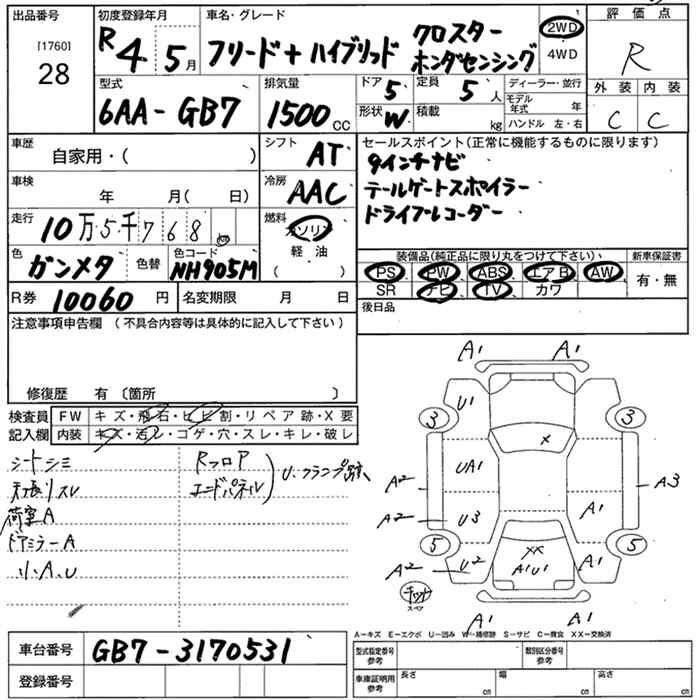 出品番号
[1760]
28
初度登録年月
R4年 5月
車名・グレード
フリード+ハイブリッド クロスター
ホンダセンシング
2WD
4WD
評価点
R
外装 内装
C C
型式
6AA-GB7
排気量
1500cc
ドア 5
形状 W
定員 5人
積載 kg
ディーラー・並行
モデル年式 年
ハンドル 左・右
車歴
自家用・( )
シフト
AT
セールスポイント(正常に機能するものに限ります)
9インチナビ
テールゲートスポイラー
ドライブレコーダー
車検
年 月( 日)
冷房
AAC
走行
10万5千768
燃料
ガソリン
軽油
( )
色
ガンメタ
色替
色コード
NH905M
装備品(純正品に限り丸をつけて下さい)
PS PW ABS エアB AW
SR ナビ TV カワ
新車保証書
有・無
R券 10060円
名変期限 月 日
後日品
注意事項申告欄(不具合内容等は具体的に記入して下さい)
修復歴 有〔箇所 〕
検査員
記入欄
FW キズ・飛石・ヒビ割・リペア跡・X要
内装 キズ・汚レ・コゲ・穴・スレ・キレ・破レ
シートシミ
天張リスレ
荷室A
ドアミラーA
小A、U
Rフロア
エンドパネル
U、クランプ跡
A1 A1
U1
3 3
X
UA1
A2 A3
A2 U3 A1
5 5
A2 U2 XX A1
A1U1
キット
スペア
A1 A1
A-キズ E-エクボ U-凹み W-補修跡 S-サビ C-腐食 XX-交換済
車台番号
GB7-3170531
登録番号
型式指定番号
参考
類別区分番号
参考
車庫証明用
参考
長さ cm
幅 cm
高さ cm